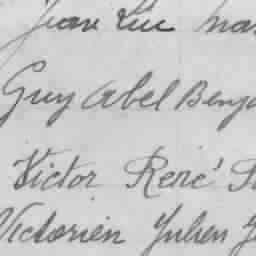 Jean Luc
Guy Abel
Victor René
Victorien Julien